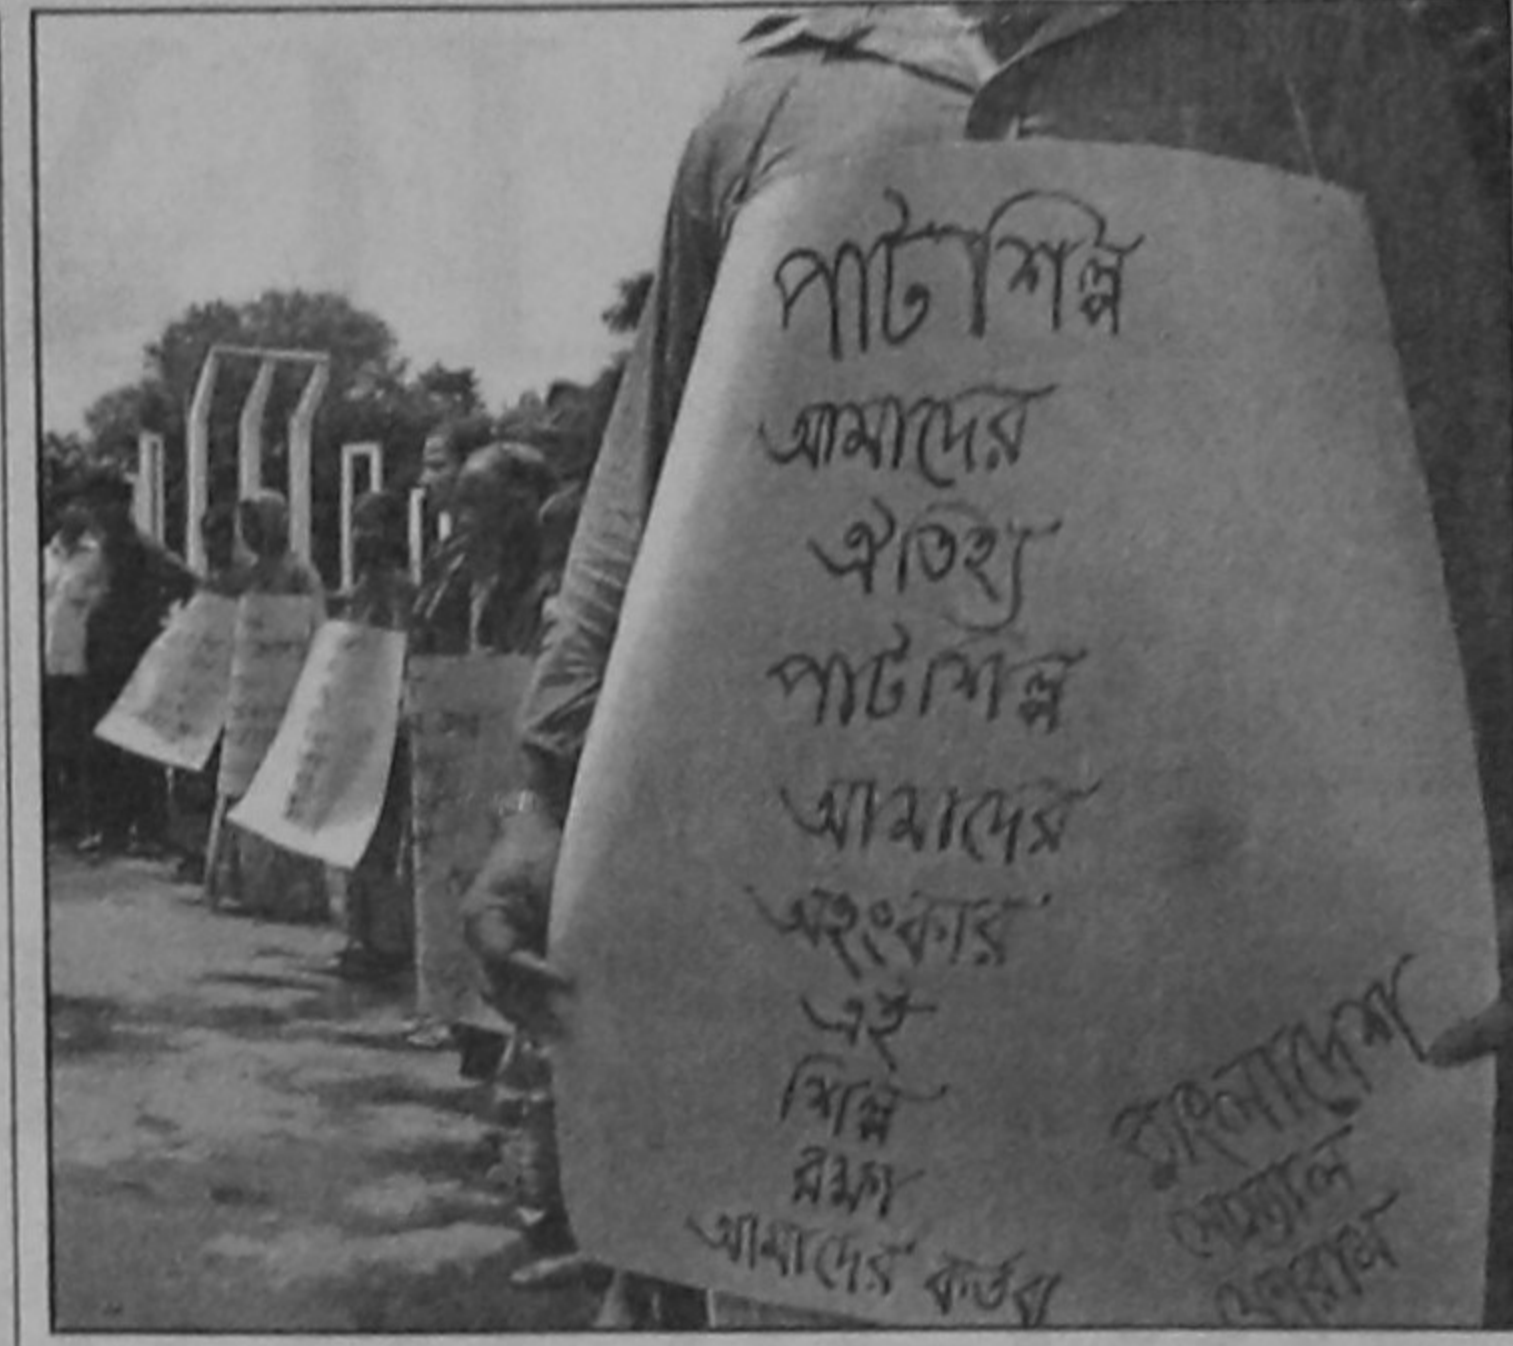 পাটশিল্প
আমাদের
ঐতিহ্য
পাটশিল্প
আমাদের
অহংকার
এই
শিল্প
রক্ষা
আমাদের কর্তব্য
বাংলাদেশ
সোস্যাল
ফোরাম